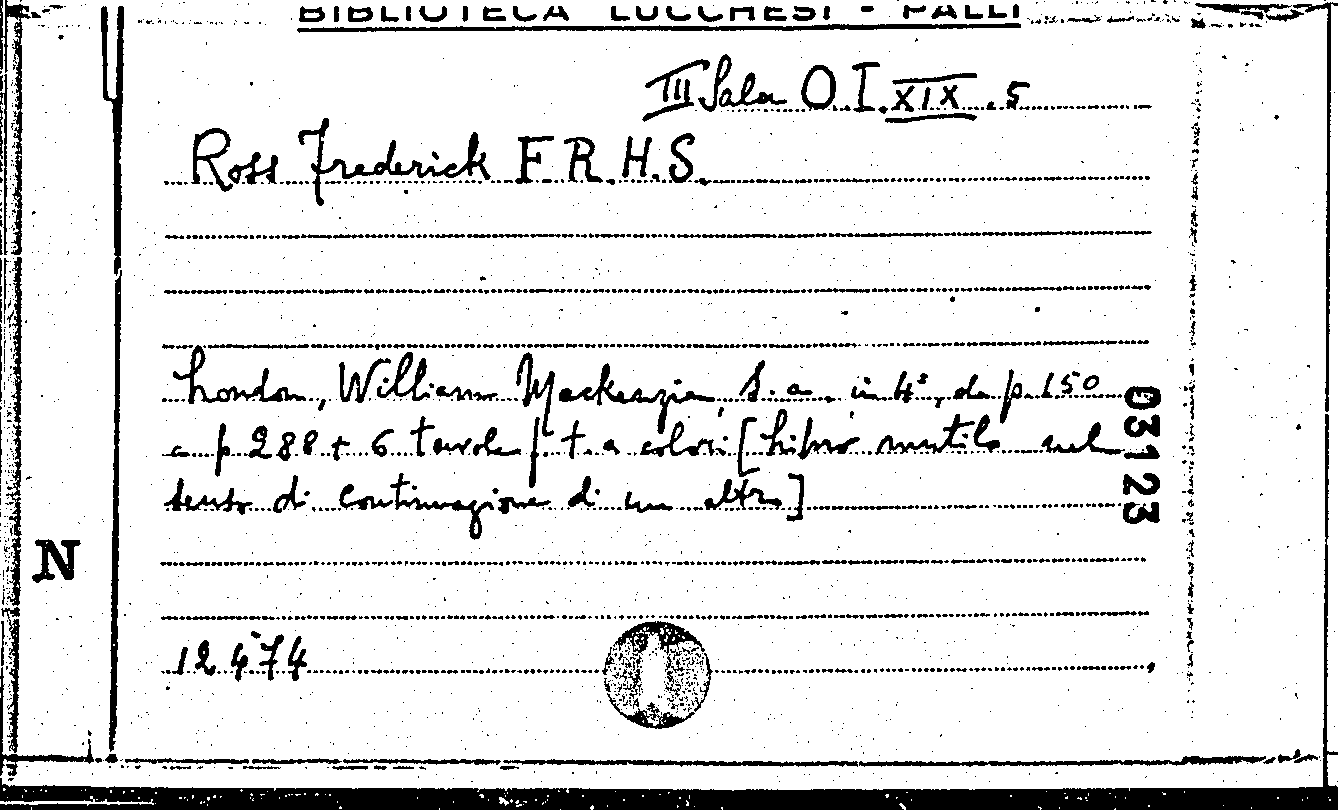 BIBLIOTECA LUCCHESI - PALLI
III Sala O I. XIX . 5
Ross Frederick F. R. H. S.
London, William Mackenzie, s. a. in 4°, da p. 150
a p 288 + 6 tavole f. t. a colori [libro mutilo nel
senso di continuazione di un altro]
03123
N
12474